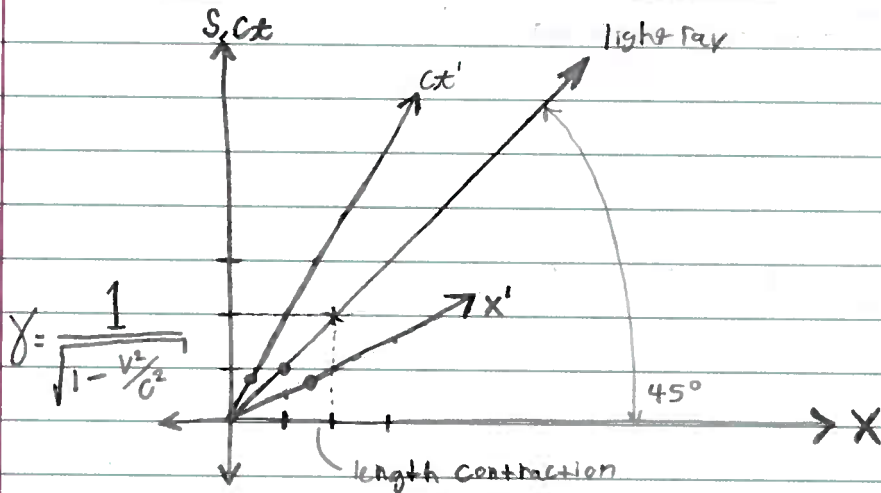 S, ct
light ray
ct'
x'
γ = 1/√(1 - v²/c²)
45°
x
length contraction